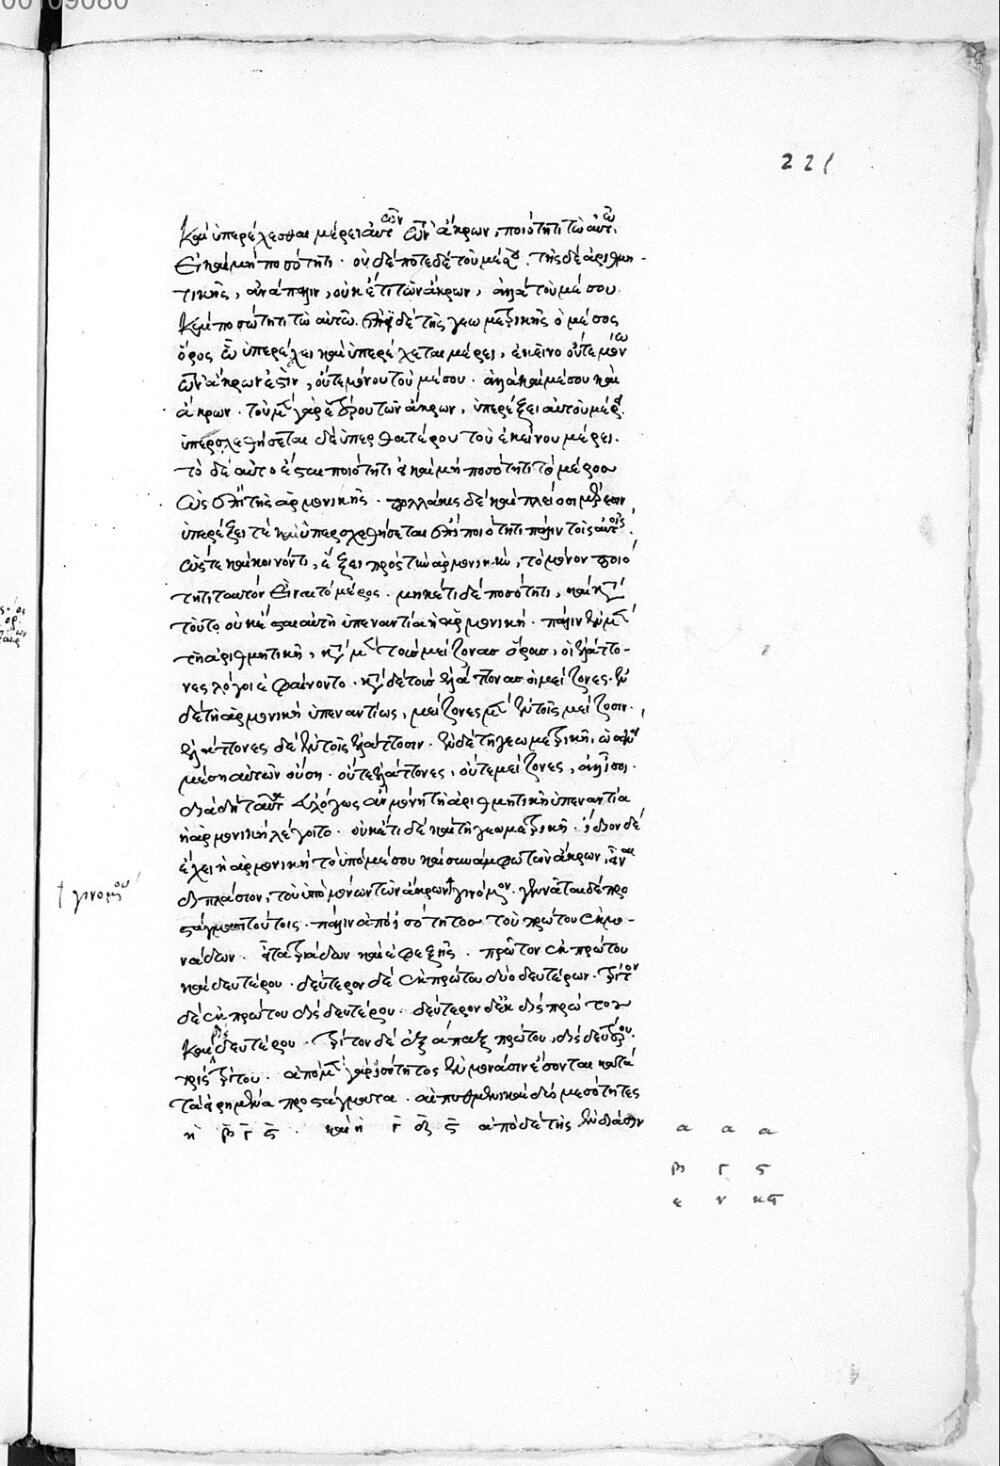 00109080
221
καὶ ὑπερέχεσθαι μέρει αὐτῶν τῶν ἄκρων, ποιότητι τῷ αὐτῷ.
εἰ καὶ μὴ ποσότητι. οὐδέποτε δὲ τοῦ μέσου. τῆς δὲ ἀριθμη-
τικῆς, ἀνάπαλιν, οὐκέτι τῶν ἄκρων, ἀλλὰ τοῦ μέσου.
καὶ ποσότητι τῷ αὐτῷ. ἐπὶ δὲ τῆς γεωμετρικῆς ὁ μέσος
ὅρος ᾧ ὑπερέχει καὶ ὑπερέχεται μέρει, ἐκεῖνο οὔτε μόνων
τῶν ἄκρων ἐστὶν, οὔτε μόνου τοῦ μέσου. ἀλλὰ καὶ μέσου καὶ
ἄκρων. τοῦ μὲν γὰρ ἑτέρου τῶν ἄκρων, ὑπερέξει αὐτοῦ μέρει.
ὑπερσχεθήσεται δὲ ὑπὲρ θατέρου τοῦ ἐκείνου μέρει.
τὸ δὲ αὐτὸ ἔσται ποιότητι καὶ μὴ ποσότητι τὸ μέρος
ὡς ἐπὶ τῆς ἁρμονικῆς. πολλάκις δὲ καὶ πλείοσι μέρεσιν
ὑπερέξει τὲ καὶ ὑπερσχεθήσεται ἐπὶ ποιότητι πάλιν τοῖς αὐτοῖς.
ὥστε καὶ κοινόν τι, ἕξει πρὸς τὴν ἁρμονικὴν, τὸ μόνον ποιό
τητι ταυτὸν εἶναι τὸ μέρος. μηκέτι δὲ ποσότητι, καὶ κατὰ
τοῦτο οὐκ ἔσται αὐτῇ ὑπεναντία ἡ ἁρμονική. πάλιν ἐν μὲν
τῇ ἀριθμητικῇ, κατὰ μὲν τοὺς μείζονας ὅρους, οἱ ἐλάττο-
νες λόγοι ἐφαίνοντο. κατὰ δὲ τοὺς ἐλάττονας οἱ μείζονες. ἐν
δὲ τῇ ἁρμονικῇ ὑπεναντίως, μείζονες μὲν ἐν τοῖς μείζοσιν.
ἐλάττονες δὲ ἐν τοῖς ἐλάττοσιν. ἐν δὲ τῇ γεωμετρικῇ,
μέσῃ αὐτῶν οὔσῃ. οὔτε ἐλάττονες, οὔτε μείζονες, ἀλλ' ἴσοι.
διὰ δὴ ταῦτα εὐλόγως ἂν μόνῃ τῇ ἀριθμητικῇ ὑπεναντία
ἡ ἁρμονικὴ λέγοιτο. οὐκέτι δὲ καὶ τῇ γεωμετρικῇ. ἴδιον δὲ
ἔχει ἡ ἁρμονικὴ τὸ ὑπὸ μέσου καὶ συναμφω τῶν ἄκρων,
διπλάσιον, τοῦ ὑπὸ μόνων τῶν ἄκρων † γινόμενον. γεννᾶται δὲ προ
† γινομένου
στάγμασι τούτοις. πάλιν ἀπὸ ἰσότητος τοῦ πρώτου ἐκ μο-
νάδων. εἶτα δυάδων καὶ ἐφεξῆς. πρῶτον ἐκ πρώτου
καὶ δευτέρου. δεύτερον δὲ ἐκ πρώτου δύο δευτέρων. τρίτον
δὲ ἐκ πρώτου δὶς δευτέρου. δεύτερον δὲ ἐκ δὶς πρώτου
καὶ δὶς δευτέρου. τρίτον δὲ ἐξ ἅπαξ πρώτου, δὶς δευτέρου.
τρὶς τρίτου. ἀπὸ μὲν γὰρ ἰσότητος ἐν μονάσιν ἔσονται κατὰ
τὰ εἰρημένα προστάγματα. αἱ πυθμενικαὶ δύο μεσότητες
ἡ β γ ϛ. καὶ ἡ γ δ ϛ ἀπὸ δὲ τῆς ἐν δυάσιν
α α α
β γ ϛ